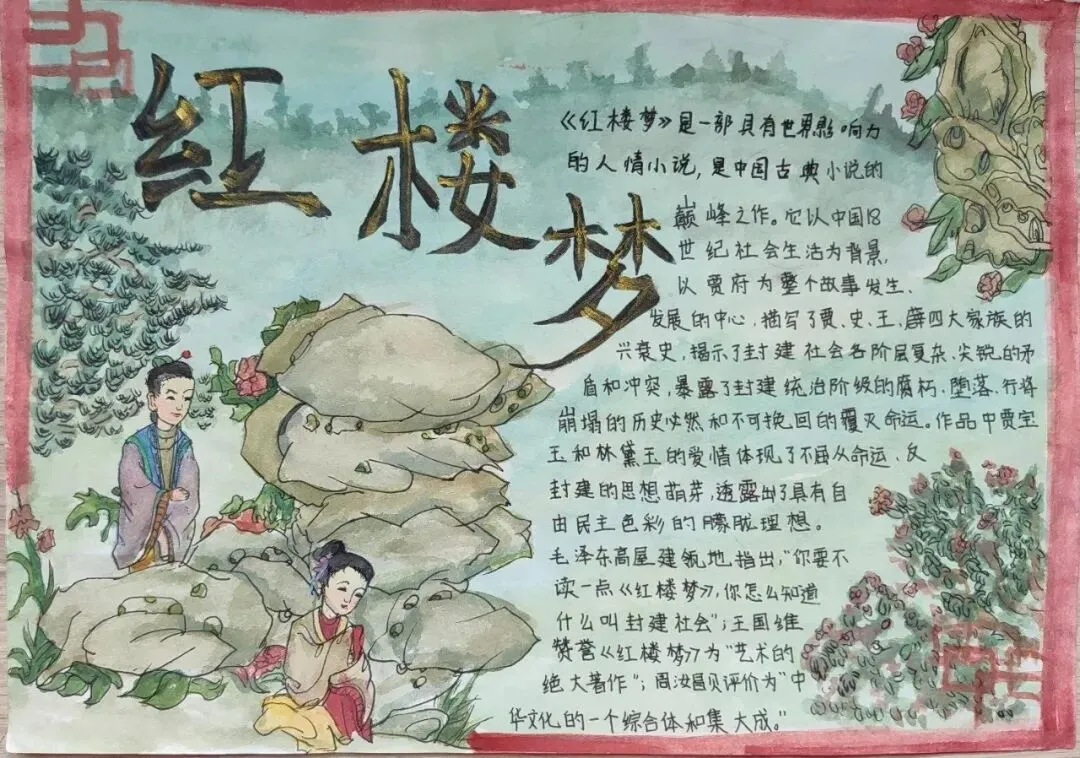 紅楼梦
《红楼梦》是一部具有世界影响力
的人情小说，是中国古典小说的
巅峰之作。它以中国18
世纪社会生活为背景，
以贾府为整个故事发生、
发展的中心，描写了贾、史、王、薛四大家族的
兴衰史，揭示了封建社会各阶层复杂、尖锐的矛
盾和冲突，暴露了封建统治阶级的腐朽、堕落、行将
崩塌的历史必然和不可挽回的覆灭命运。作品中贾宝
玉和林黛玉的爱情体现了不屈从命运、反
封建的思想萌芽，透露出了具有自
由民主色彩的朦胧理想。
毛泽东高屋建瓴地指出，"你要不
读一点《红楼梦》，你怎么知道
什么叫封建社会"；王国维
赞誉《红楼梦》为"艺术的
绝大著作"；周汝昌则评价为"中
华文化的一个综合体和集大成。"